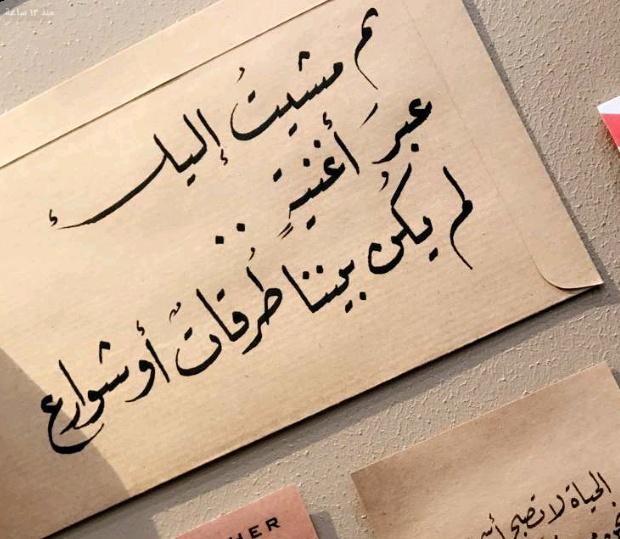 منذ ١٣ ساعة
ثم مشيتُ إليك
عبرَ أغنيةٍ ..
لم يكُن بيننا طُرقاتٌ أو شوارع
HER
الحياة لا تصبح